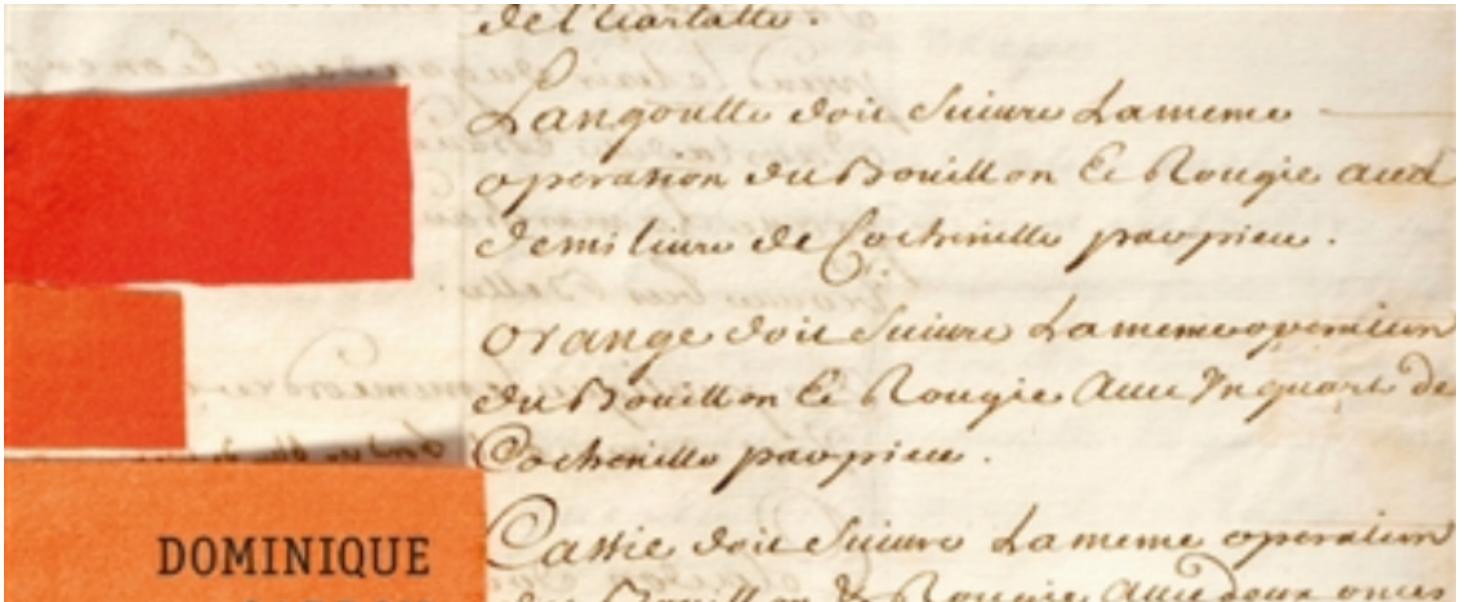 de l'Ecarlatte.
Langoutte doit Suivre La meme
operation du Bouillon Et Rougie avec
demi livre de Cochenille par piece.
Orange doit Suivre La meme operation
du Bouillon Et Rougie Avec Un quart de
Cochenille par piece.
Cassie doit Suivre La meme operation
du Bouillon & Rougie Avec deux onces
DOMINIQUE